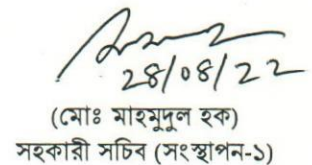 28/08/22
(মোঃ মাহমুদুল হক)
সহকারী সচিব (সংস্থাপন-১)